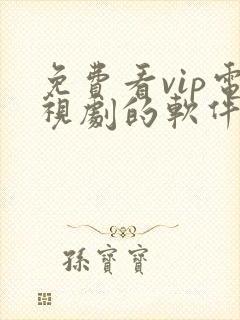 免費看vip電
視劇的軟件
孫寶寶